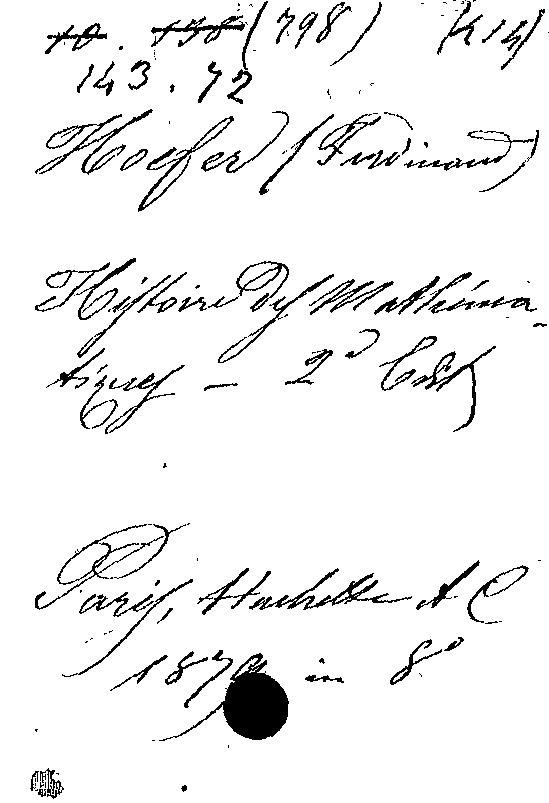 10. 138 (798) (K14)
143.72
Hoefer (Ferdinand)
Histoire des Mathéma-
tiques - 2d Edit
Paris, Hachette & C
1879 in 8°